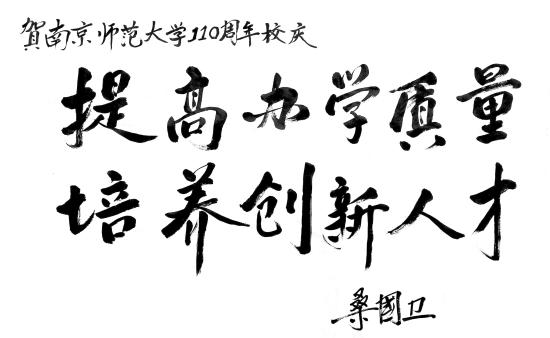 贺南京师范大学110周年校庆
提高办学质量
培养创新人才
桑国卫